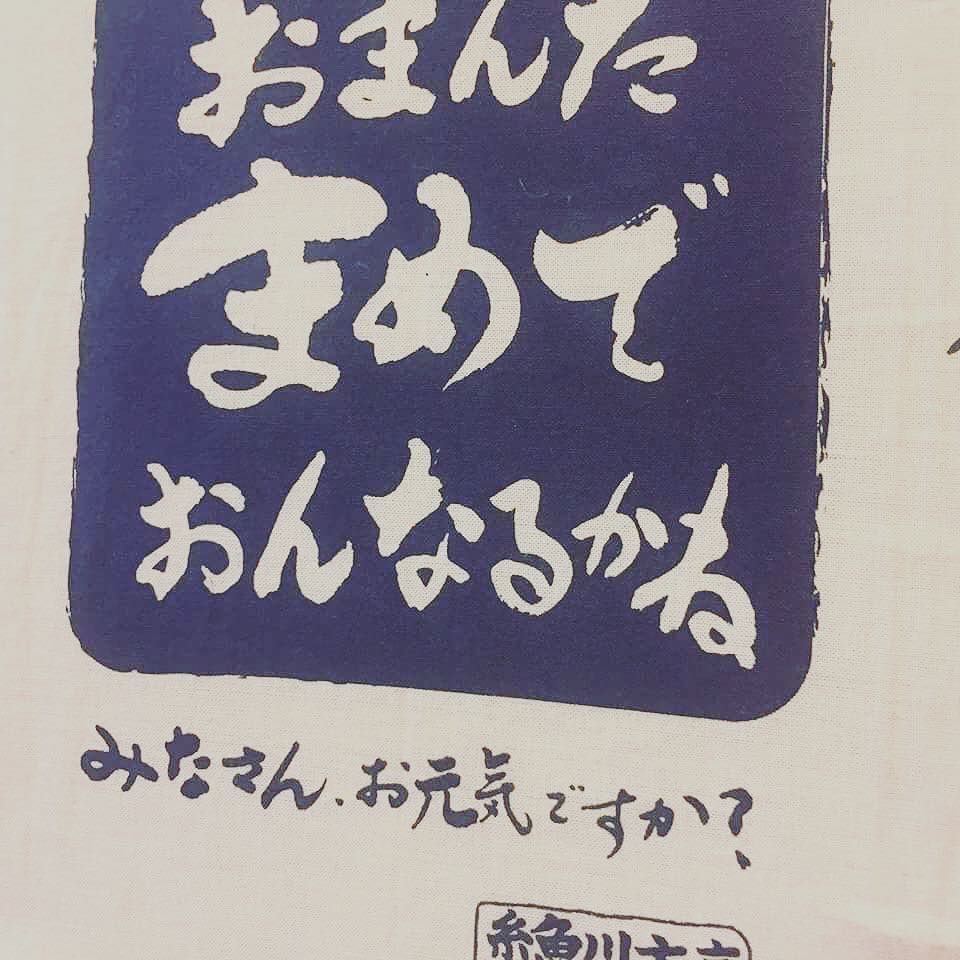 おまんた
まめで
おんなるかね
みなさん、お元気ですか?
糸魚川